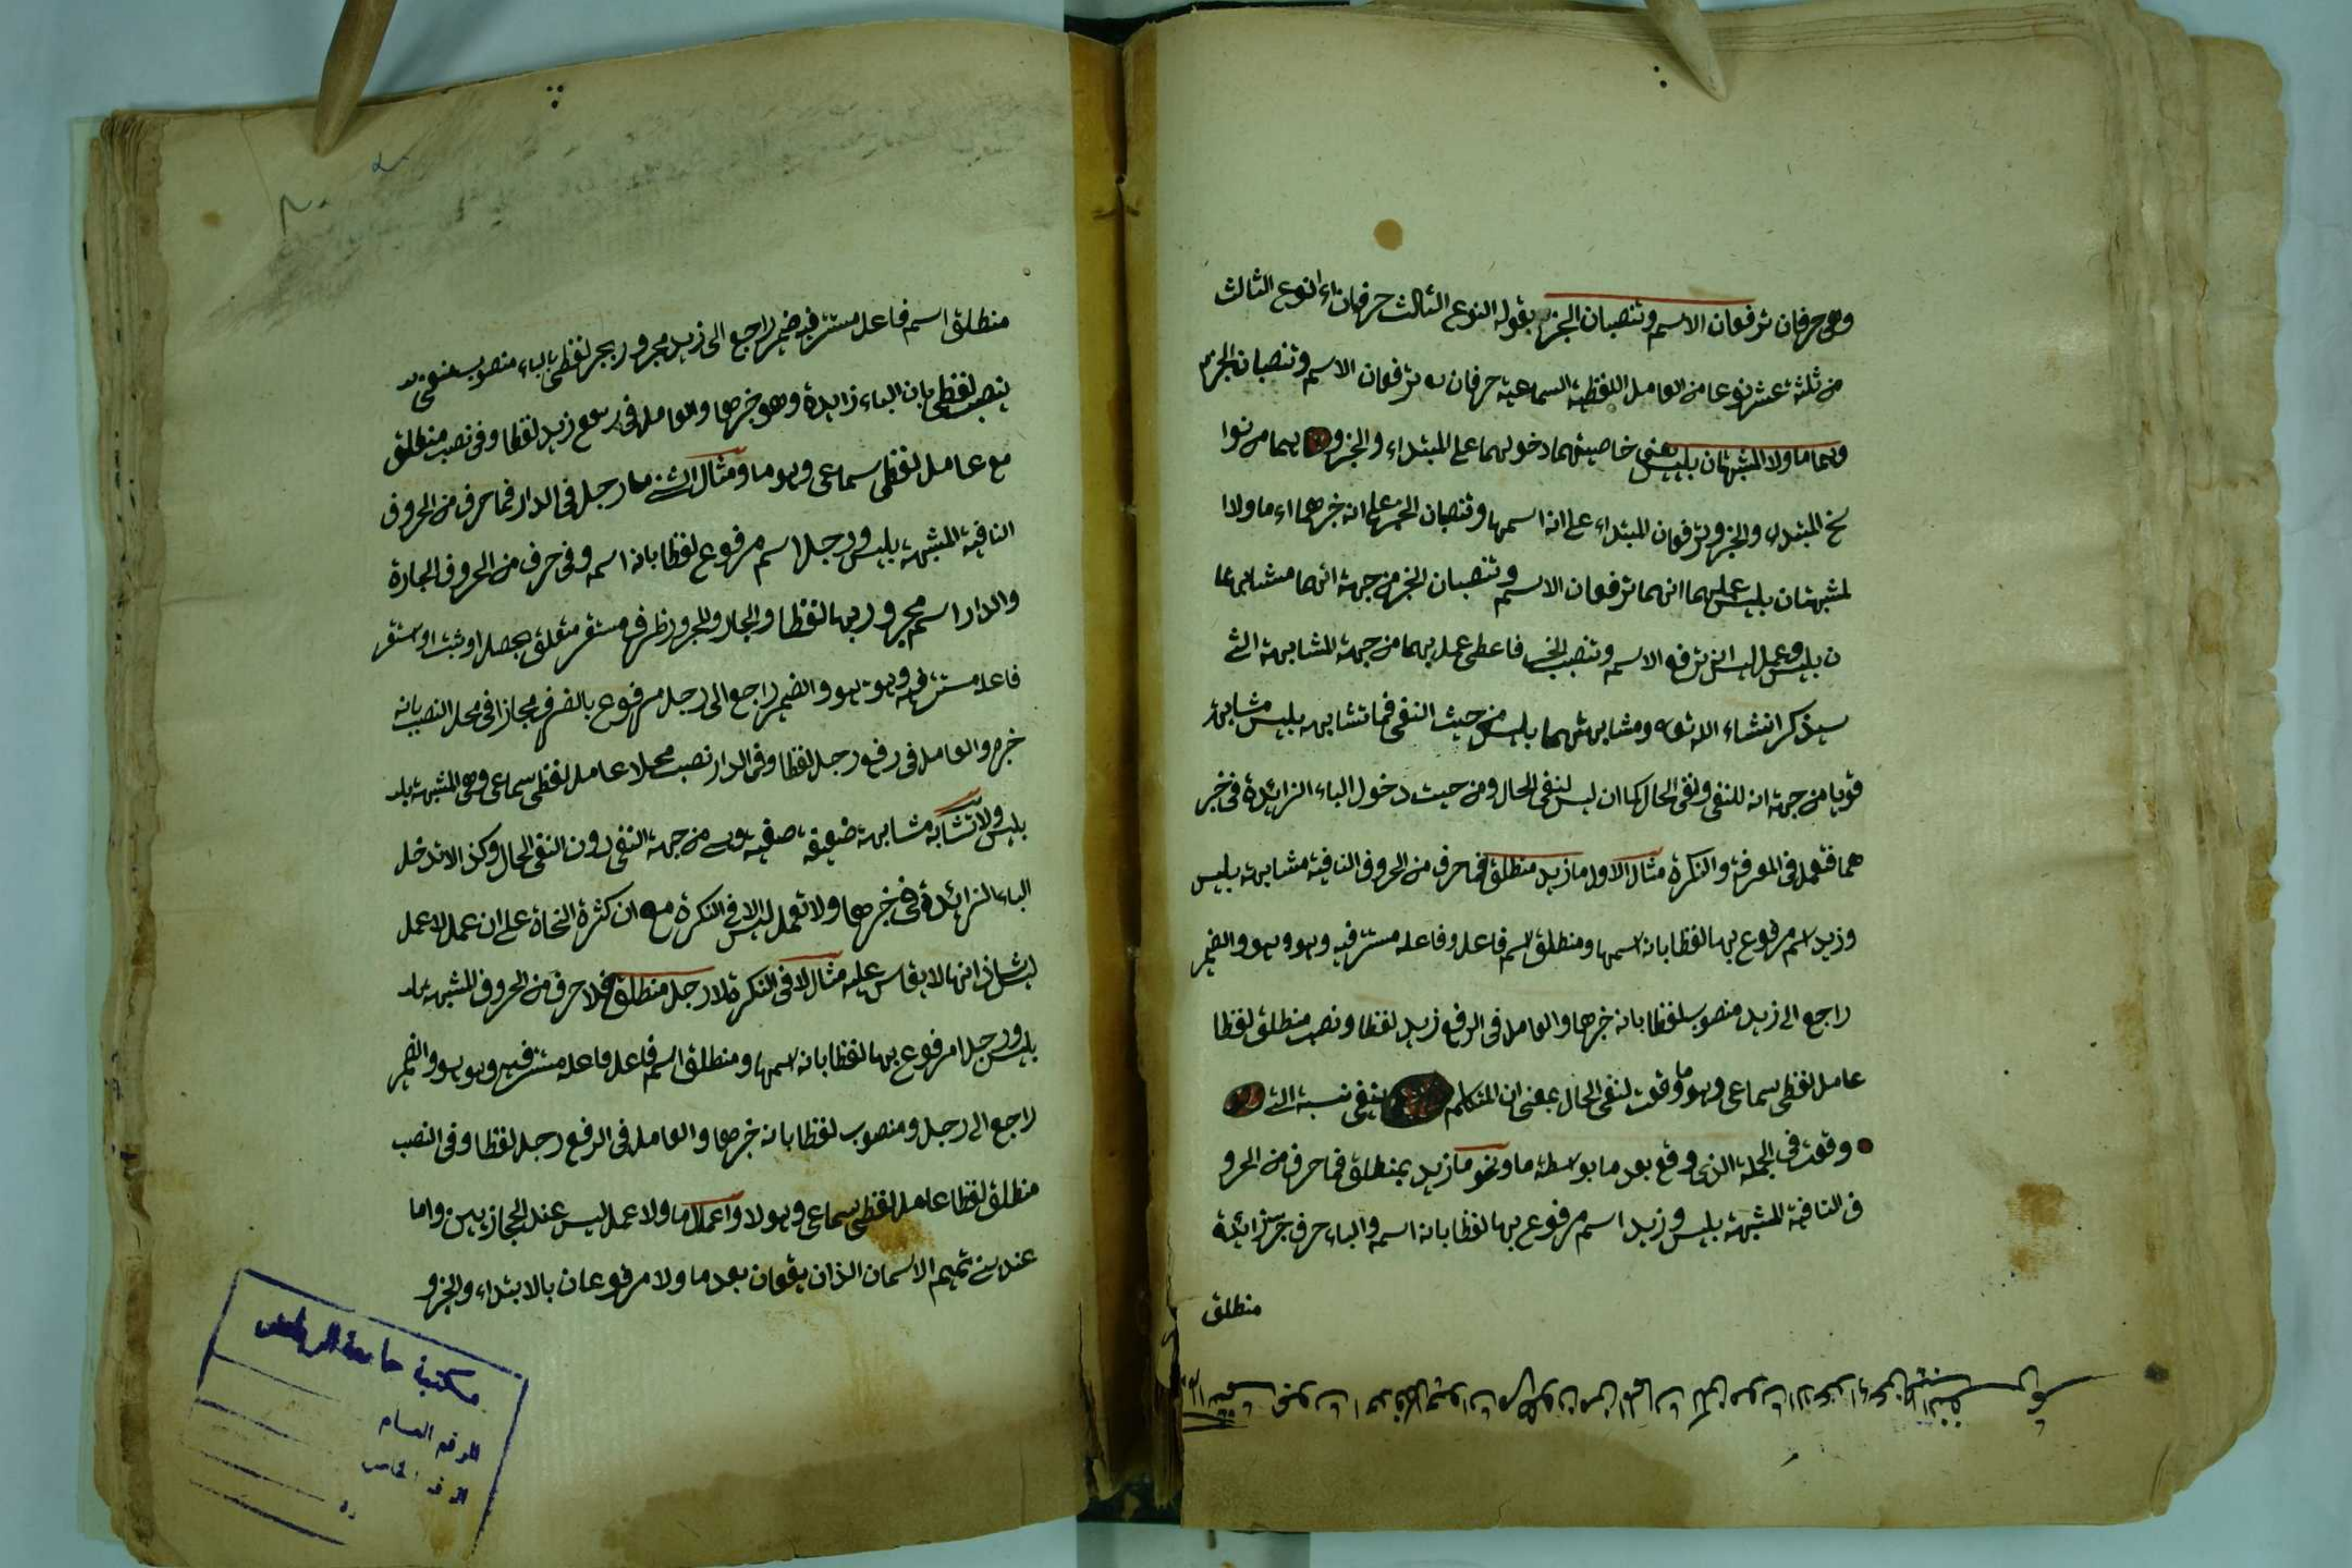 وهى حرفان ترفعان الاسم وتنصبان الخبر بقوله النوع الثالث حرفان اء النوع الثالث
من ثلثة عشر نوعا من العامل اللفظية السماعية حرفان ترفعان الاسم وتنصبان الخبر
وهما ما ولا المشبهتان بليس يعنى خاصيتهما دخولهما على المبتداء والخبر و بهما من نوا
سخ المبتداء والخبر وترفعان المبتداء على انه اسمها وتنصبان الخبر على انه خبرهما اء ما ولا ا
لمشبهتان بليس عليهما انهما ترفعان الاسم وتنصبان الخبر من جهة انهما مشابهتا
ن بليس وعمل ليس ان ترفع الاسم وتنصب الخبر فاعطى عمل بهما من جهة المشابهة التى
سيذكر انشاء الله تعه ومشابهتهما بليس من حيث النفى فما تشابه بليس مشابهة
قويا من جهة انه للنفى ونفى الحال كما ان ليس لنفى الحال ومن حيث دخول الباء الزائدة فى خبر
هما فتعمل فى المعرفة والنكرة مثال الاول ما زيد منطلق فما حرف من الحروف النافية مشابهة بليس
وزيد اسم مرفوع بها لفظا بانه اسمها ومنطلق اسم فاعل وفاعله مستتر فيه وهو وهو والضمير
راجع الى زيد منصوب لفظا بانه خبرها والعامل فى الرفع زيد لفظا ونصب منطلق لفظا
عامل لفظى سماعى وهو ما وقعت لنفى الحال بمعنى ان المتكلم ينفى نسبة التى
وقعت فى الجملة الذى وقع بعد ما بواسطة ما ونحو ما زيد بمنطلق فما حرف من الحرو
ف النافية المشبهة بليس وزيد اسم مرفوع بها لفظا بانه اسمه والباء حرف جر زائدة
منطلق
منطلق اسم فاعل مستتر فيه ضمير راجع الى زيد مجرور بجر لفظى بالباء منصوب
بنصب لفظى بان الباء زايدة وهو خبرها والعامل فى رفع زيد لفظا وفى نصب منطلق
مع عامل لفظى سماعى وهو ما ومثال الثنى ما رجل فى الدار فما حرف من الحروف
النافية المشبهة بليس ورجل اسم مرفوع لفظا بانه اسمه وفى حرف من الحروف الجارة
والدار اسم مجرور بها لفظا والجار والمجرور ظرف مستقر متعلق بحصل او ثبت او استقر
فاعله مستتر فيه وهو هو والضمير راجع الى رجل مرفوع بالظرف مجازا فى محل النصب بانه
خبره والعامل فى رفع رجل لفظا وفى الدار نصب محلا عامل لفظى سماعى وهى المشبهة بلد
بليس ولا تشابه مشابهة ضعيفة صفيه وهى من جهة النفى دون النفى الحال وكذا لا تدخل
الباء الزائدة فى خبرها ولا تعمل ليس الا فى النكرة مع ان كثرة النحاة على ان عمل لا عمل
ليس شاذ انها لا يقاس عليه مثال لا فى النكرة لا رجل منطلق فلا حرف من الحروف المشبهة بلد
بليس ورجل مرفوع بها لفظا بانه اسمها ومنطلق اسم فاعل فاعله مستتر فيه وهو هو والضمير
راجع الى رجل ومنصوب لفظا بانه خبرها والعامل فى الرفع رجل لفظا وفى النصب
منطلق لفظا عامل لفظى سماعى وهو لا واعمال ما ولا عمل ليس عند الحجازيين واما
عند بنى تميم الاسمان الذان يقعان بعد ما ولا مرفوعان بالابتداء والخبر و
مكتبة جامعة الرياض
الرقم العام
الرقم الخاص